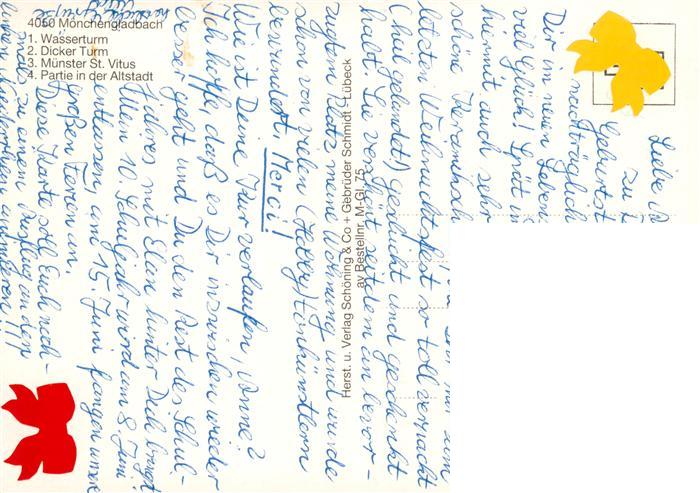 4050 Mönchengladbach
1. Wasserturm
2. Dicker Turm
3. Münster St. Vitus
4. Partie in der Altstadt
Herst. u. Verlag Schöning & Co + Gebrüder Schmidt - Lübeck
ay Bestellnr. M-Gl. 75
Liebe
zu
Geburtst
nachträglich
Dir im neuen Leben
viel Glück! Spät
hiermit auch sehr
schöne Keramisch
zum
letzten Weihnachtsfest so toll verpackt
(heil gelandet) gedacht und geschenkt
hast. Sie verschönt seitdem an bevor-
zugtem Platz meine Wohnung und wurde
schon von vielen (Hobby) Tonkünstlern
bewundert. Merci!
Wie ist Deine Kur verlaufen, Anne?
Ich hoffe, daß es Dir inzwischen wieder
besser geht und Du den Rest des Schul-
jahres mit Elan hinter Dich bringst.
Mein 10. Schuljahr wird am 8. Juni
entlassen, am 15. Juni fangen unsere
großen Ferien an.
Diese Karte soll Euch noch-
mals zu einem Ausflug in den
animieren!!